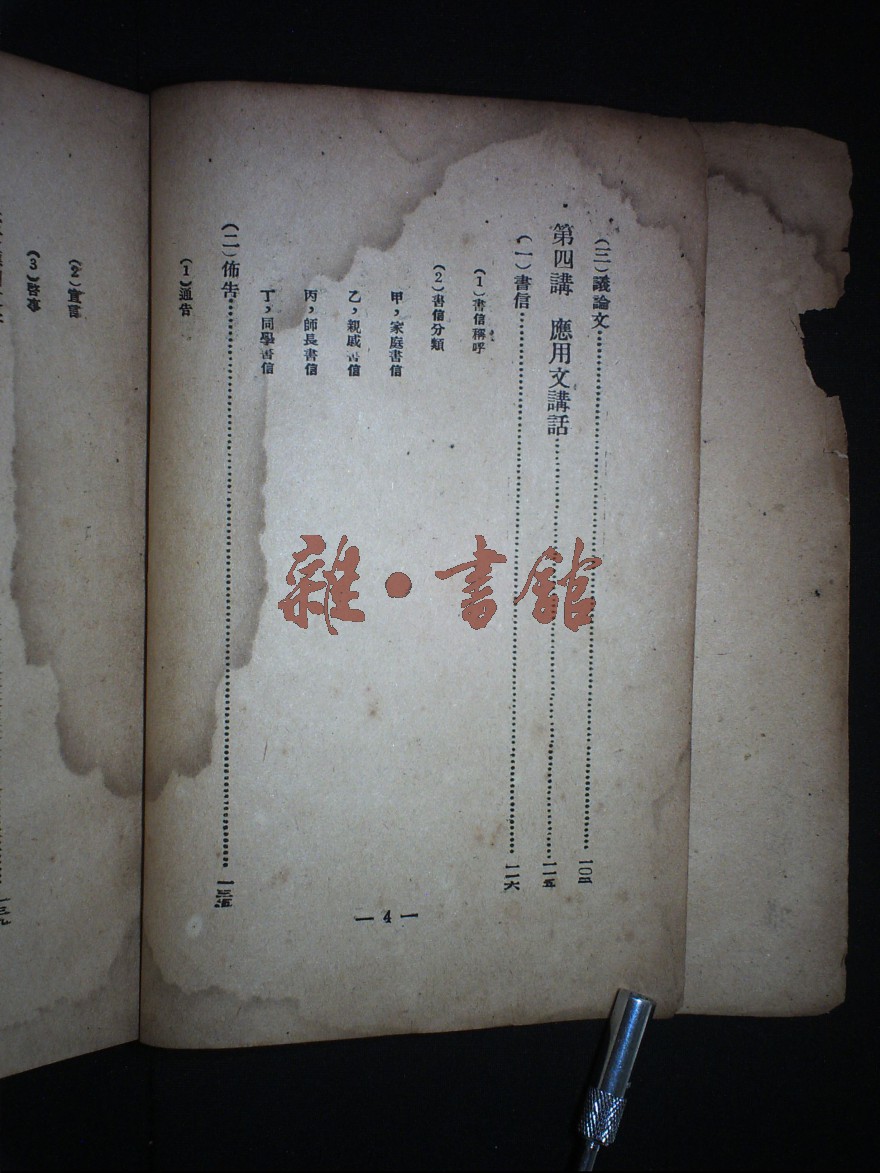 (三)議論文……一〇五
第四講 應用文講話……一一五
(一)書信……一一六
(1)書信稱呼
(2)書信分類
甲,家庭書信
乙,親戚書信
丙,師長書信
丁,同學書信
(二)佈告……一三五
(1)通告
— 4 —
(2)宣言
(3)啓事
雜·書館